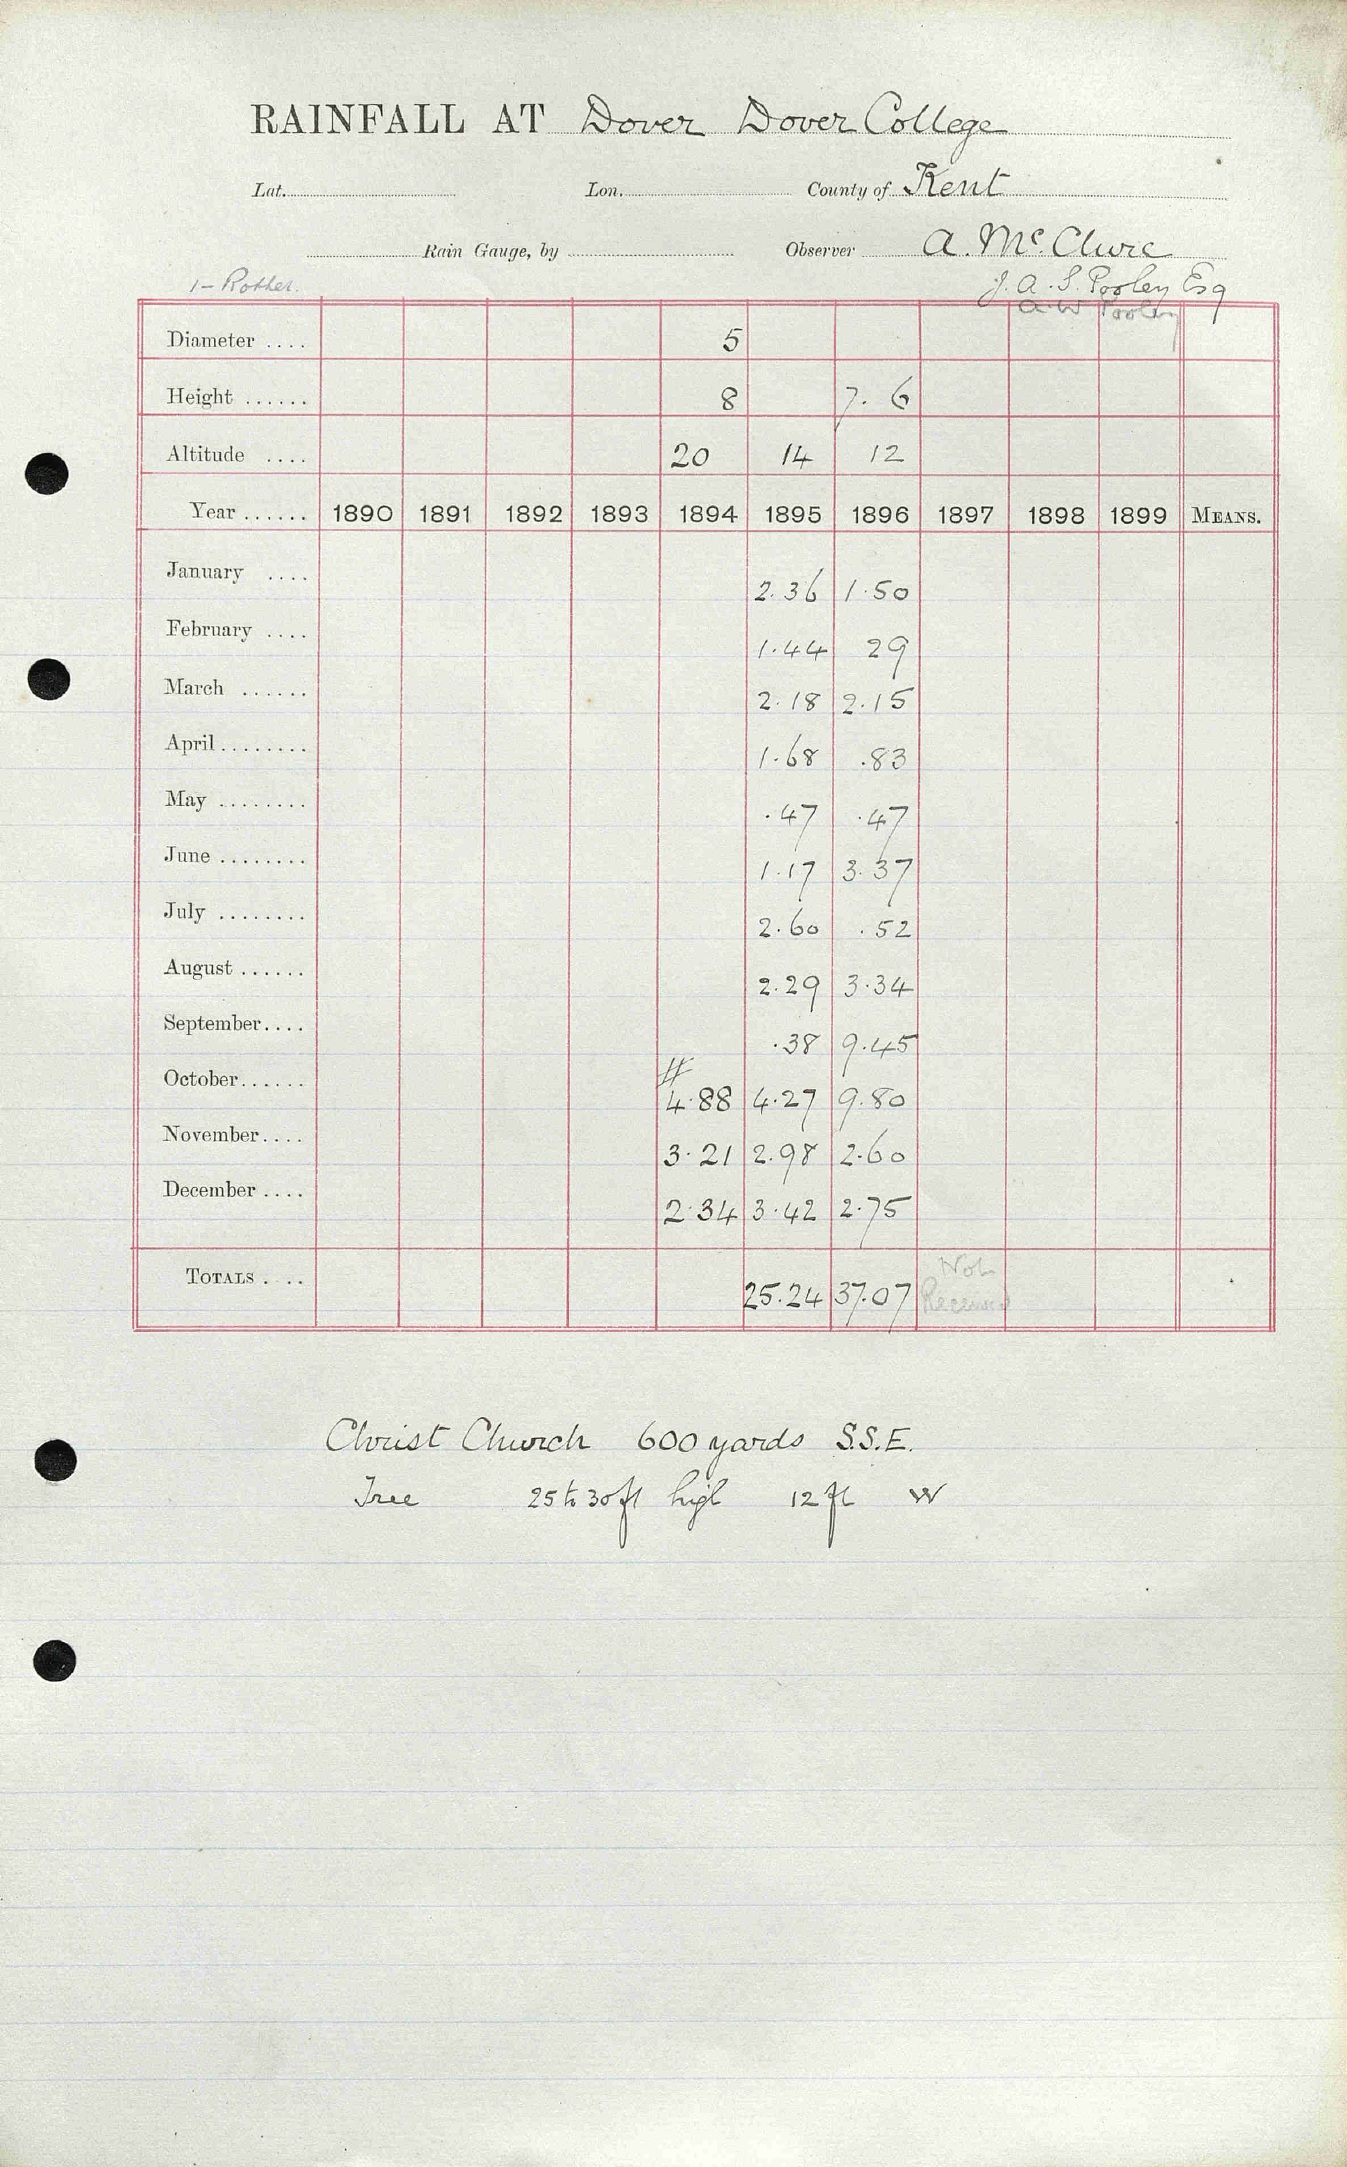 RAINFALL AT Dover Dover College
Lat. Lon. County of Kent
Rain Gauge, by Observer A. McClure
1 - Rother. J. A. S. Pooley Esq
A. W Pooley
Diameter .... 5
Height ...... 8 7. 6
Altitude .... 20 14 12
Year ...... 1890 1891 1892 1893 1894 1895 1896 1897 1898 1899 MEANS.
January .... 2.36 1.50
February .... 1.44 29
March ...... 2.18 2.15
April ........ 1.68 .83
May ........ .47 .47
June ........ 1.17 3.37
July ........ 2.60 .52
August ...... 2.29 3.34
September.... .38 9.45
#
October...... 4.88 4.27 9.80
November.... 3.21 2.98 2.60
December .... 2.34 3.42 2.75
Not
TOTALS .... 25.24 37.07 Received
Christ Church 600 yards S.S.E.
Tree 25 to 30 ft high 12 ft W